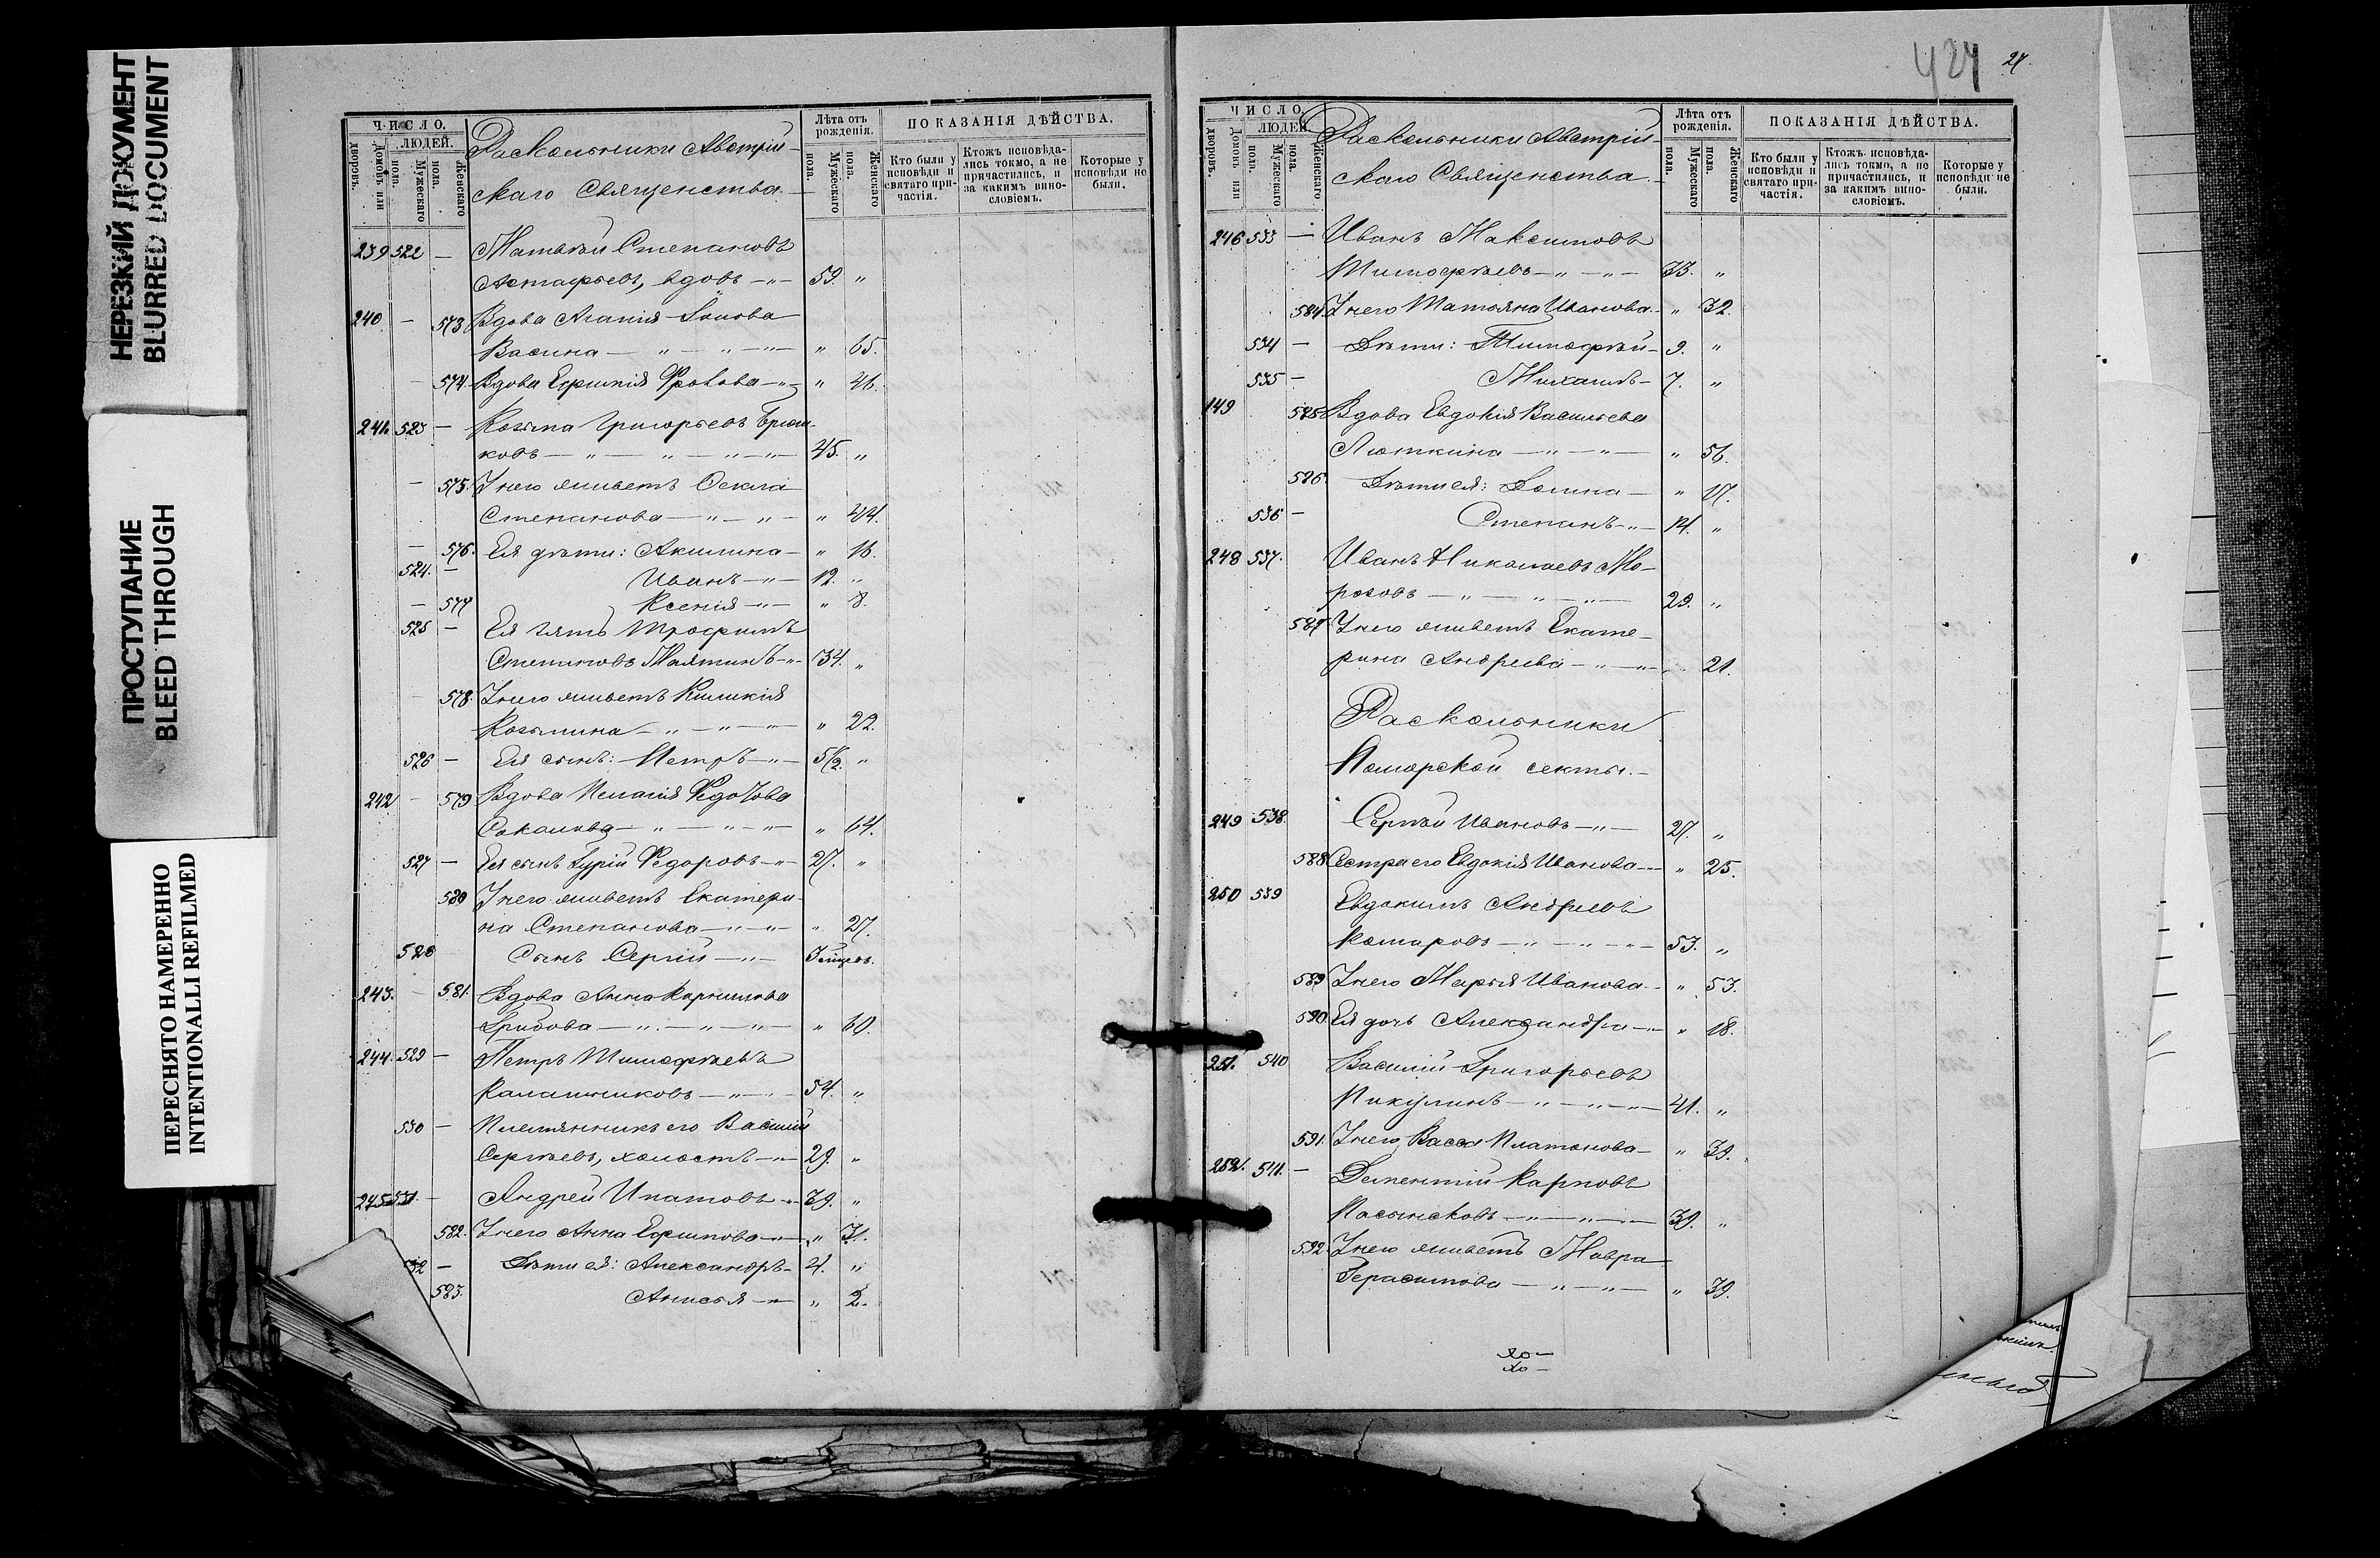 НЕРЕЗКИЙ ДОКУМЕНТ
BLURRED DOCUMENT
ПРОСТУПАНИЕ
BLEED THROUGH
ПЕРЕСНЯТО НАМЕРЕННО
INTENTIONALLI REFILMED
ЧИСЛО.
ЛЮДЕЙ.
дворовъ.
Домовъ или
Мужескаго пола.
Женскаго пола.
Раскольники Австрій-
скаго Священства
Лѣта отъ рожденія.
Мужескаго пола.
Женскаго пола.
ПОКАЗАНІЯ ДѢЙСТВА.
Кто были у исповѣди и святаго причастія.
Ктожъ исповѣдались токмо, а не причастились, и за какимъ винословіемъ.
Которые у исповѣди не были.
239 522 — Матвѣй Степановъ
Астафьевъ, вдовъ —"— 59. "
240 — 573 Вдова Агапія
Васина — " — " —"— " 65.
— 574. Вдова Ефимія Фролова —"— " 46.
241. 523 — Козьма Григорьевъ
ковъ — " — " — " —"— 45. "
— 575. У него живетъ
Степанова — " — " — " 44.
— 576. Ея дѣти: Акилина — " 16.
524. — Иванъ —"— 12. "
— 577 Ксенія —"— " 8.
525 — Ея зять Трофимъ
Степановъ —"— 34. "
— 578. У него живетъ
Козьмина — " — " —"— " 22.
526 — Ея сынъ: Петръ —"— 5/2. "
242 — 579 Вдова Пелагія Федотова
— " — " —"— " 64.
527 — Ея сынъ Гурій Федоровъ —"— 27. "
580 У него живетъ Екатери-
на Степанова —"—"— " 27.
528 Сынъ Сергій —"—
243. — 581. Вдова Анна Корнилова
Грибова — " — " —"— " 60.
244. 529 — Петръ Тимофѣевъ
Калашниковъ —"— 54. "
530 — Племянникъ его Василій
Сергѣевъ, холостъ —"— 29. "
245 531. — Андрей Ипатовъ —"— 39. "
582. У него Анна Ефимова —"— " 31.
532 — Дѣти ея: Александръ — 4. "
583. Анисья —"— " 2.
424 27.
ЧИСЛО.
ЛЮДЕЙ.
дворовъ.
Домовъ или
Мужескаго пола.
Женскаго пола.
Раскольники Австрій-
скаго Священства
Лѣта отъ рожденія.
Мужескаго пола.
Женскаго пола.
ПОКАЗАНІЯ ДѢЙСТВА.
Кто были у исповѣди и святаго причастія.
Ктожъ исповѣдались токмо, а не причастились, и за какимъ винословіемъ.
Которые у исповѣди не были.
246 533 — Иванъ Максимовъ
Тимофѣевъ — " —"— 33. "
584 У него Татьяна Иванова — " 32.
534 — Дѣти: Тимофѣй — 9. "
535 — Михаилъ — 7. "
149 585 Вдова Евдокія Васильева
Люткина — " —"— " 56.
586. Дѣти ея: Домна — " 17.
536 — Степанъ —"— 14. "
248 537. Иванъ Николаевъ Мо-
розовъ — " — " —"— 29. "
587 У него живетъ Екате-
рина Андреева — " —"— 21.
Раскольники
Поморской секты.—
249 538. Сергѣй Ивановъ —"— 27. "
588 Сестра его Евдокія Иванова — " 25.
250 539 Евдокимъ Андреевъ
Комаровъ —"—"—"— 53. "
589 У него Марья Иванова — " 53.
590. Ея дочь Александра —"— " 18.
251. 540 Василій Григорьевъ
Никулинъ —"—"—"— 41. "
591. У него Васса Платонова — " 39.
252. 541. — Дементій Карповъ
—"—"— 39. "
592. У него живетъ Мавра
Герасимова — " —"— " 39.